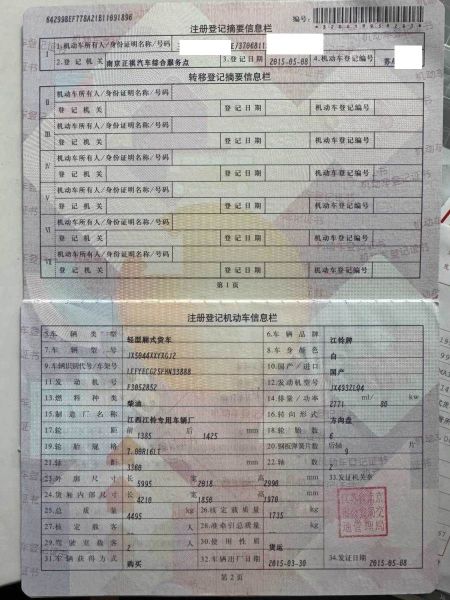 64Z99BEF7T8AZ1B11091896
编号:
注册登记摘要信息栏
I 1.机动车所有人/身份证明名称/号码
2.登记机关 南京正祺汽车综合服务点 3.登记日期 2015-05-08 4.机动车登记编号
转移登记摘要信息栏
II 机动车所有人/身份证明名称/号码
登记机关 登记日期 机动车登记编号
III 机动车所有人/身份证明名称/号码
登记机关 登记日期 机动车登记编号
IV 机动车所有人/身份证明名称/号码
登记机关 登记日期 机动车登记编号
V 机动车所有人/身份证明名称/号码
登记机关 登记日期 机动车登记编号
VI 机动车所有人/身份证明名称/号码
登记机关 登记日期 机动车登记编号
VII 机动车所有人/身份证明名称/号码
登记机关 登记日期 机动车登记编号
第1页
注册登记机动车信息栏
5.车辆类型 轻型厢式货车 6.车辆品牌 江铃牌
7.车辆型号 JX5044XXYXGJ2 8.车身颜色 白
9.车辆识别代号/车架号 LEFYECG25FHN33888 10.国产/进口 国产
11.发动机号 F3052852 12.发动机型号 JX493ZLQ4
13.燃料种类 柴油 14.排量/功率 2771 ml/ 80 kw
15.制造厂名称 江西江铃专用车辆厂 16.转向形式 方向盘
17.轮距 前 1385 后 1425 mm 18.轮胎数 6
19.轮胎规格 7.00R16LT 20.钢板弹簧片数 后轴 9 片
21.轴距 3360 mm 22.轴数 2
23.外廓尺寸 长 5995 宽 2018 高 2990 mm 33.发证机关章
24.货厢内部尺寸 长 4210 宽 1850 高 1970 mm
25.总质量 4495 kg 26.核定载质量 1735 kg
27.核定载客 人 28.准牵引总质量 kg
29.驾驶室载客 2 人 30.使用性质 货运
31.车辆获得方式 购买 32.车辆出厂日期 2015-03-30 34.发证日期 2015-05-08
第2页